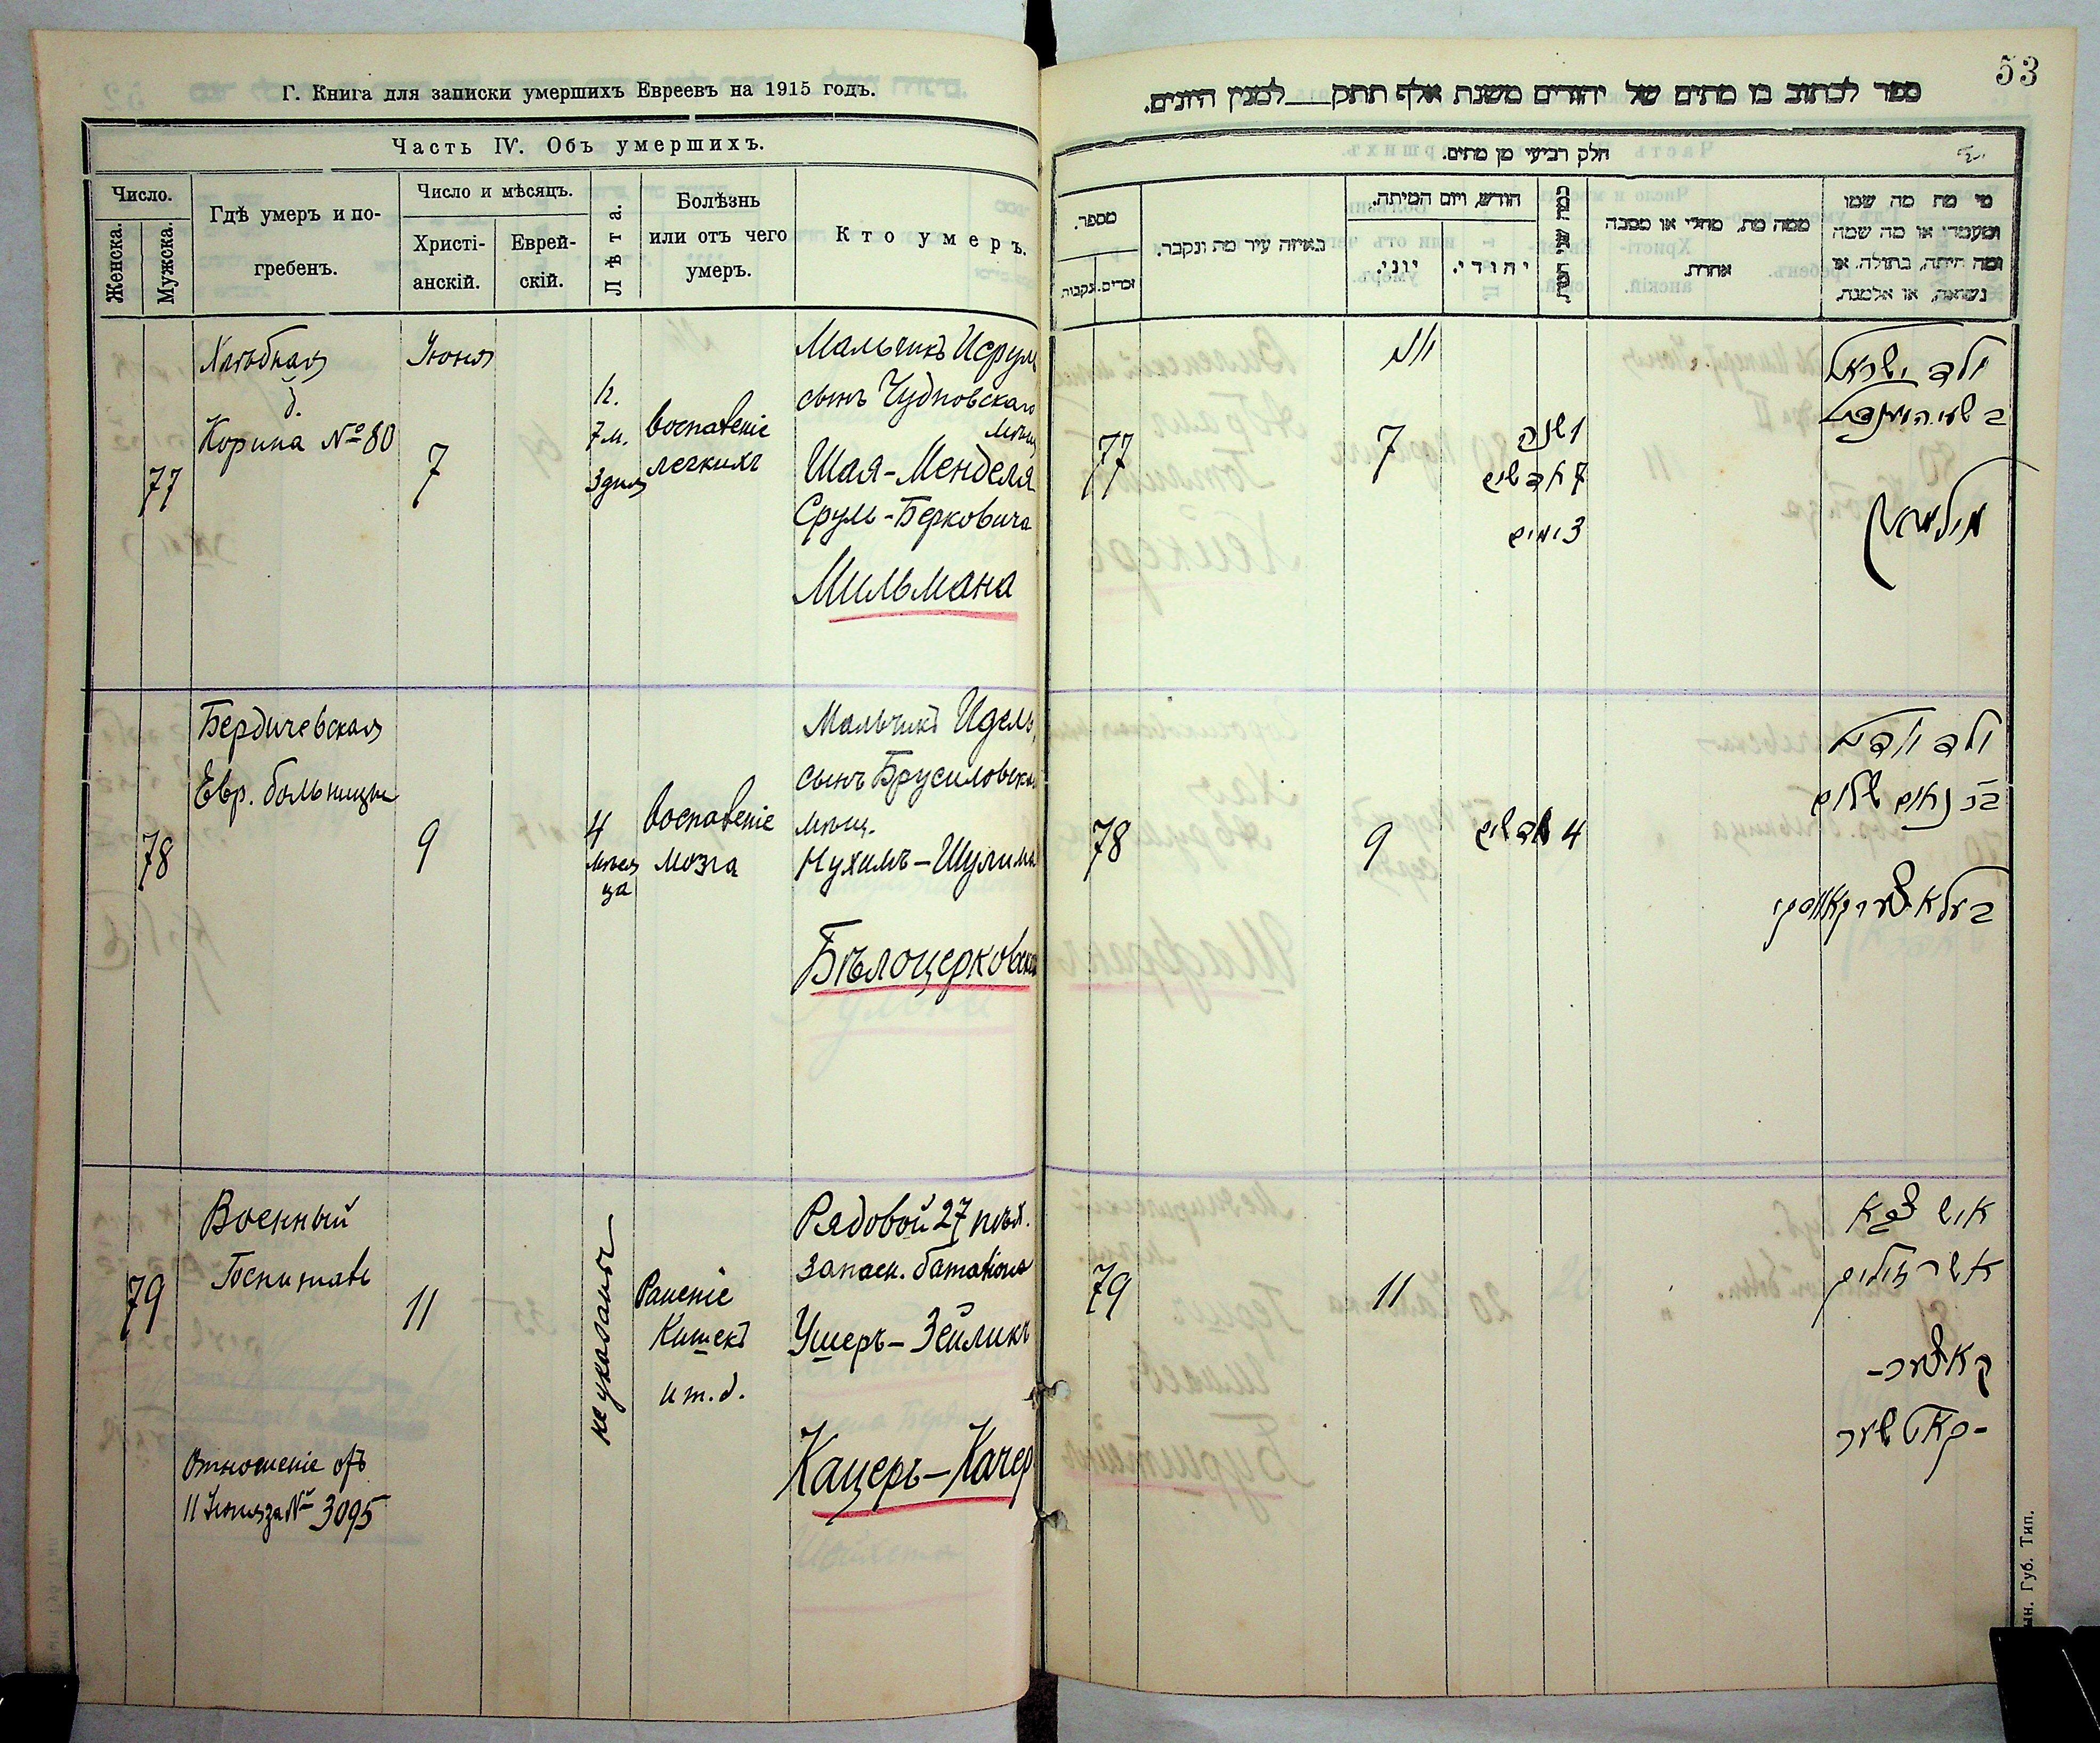 Г. Книга для записки умершихъ Евреевъ на 1915 годъ.
Часть IV. Объ умершихъ.
Число.
Женска.
Мужска.
Гдѣ умеръ и по-
гребенъ.
Число и мѣсяцъ.
Христі-
анскій.
Еврей-
скій.
Лѣта.
Болѣзнь
или отъ чего
умеръ.
Кто умеръ.
77
Хлѣбная
д.
Корина № 80
Іюня
7
7 м.
3 дня
воспаленіе
легкихъ
Мальчикъ Исрумъ
сынъ Чудновскаго
мѣщ.
Шая-Менделя
Срумъ-Берковича
Мильмана
78
Бердичевская
Евр. больница
9
4
мѣся
ца
воспаленіе
мозга
Мальчикъ Идель,
сынъ Брусиловска
мѣщ.
Нухимъ-Шулима
Бѣлоцерковска
79
Военный
Госпиталь
Отношеніе отъ
11 Іюня за № 3095
11
не указаны
Раненіе
Кишекъ
и т. д.
Рядовой 27 пѣх.
запасн. баталіона
Ушеръ-Зейликъ
Кацеръ-Качер
53
ספר לכתוב בו מתים של יהודים משנת אלף תתק למנין היונים.
חלק רביעי מן מתים.
מספר.
זכרים.
נקבות.
באיזה עיר מת ונקבר.
חודש, ויום המיתה.
יוני.
יהודי.
ממה מת, מחלי או מסבה
אחרת.
מי מת מה שמו
ומעמדו או מה שמה
ומה היתה, בתולה, או
נשואה, או אלמנה.
77
יוני
7
1 שנה
7 חדשים
3 ימים
ילד ישראל
מילמאן
78
9
4 חדשים
ילד יודל
בן נחום שלום
ביעלאצערקאווסקי
79
11
איש צבא
אשר זעליג
קאצער-
-קאטשער
ын. Губ. Тип.